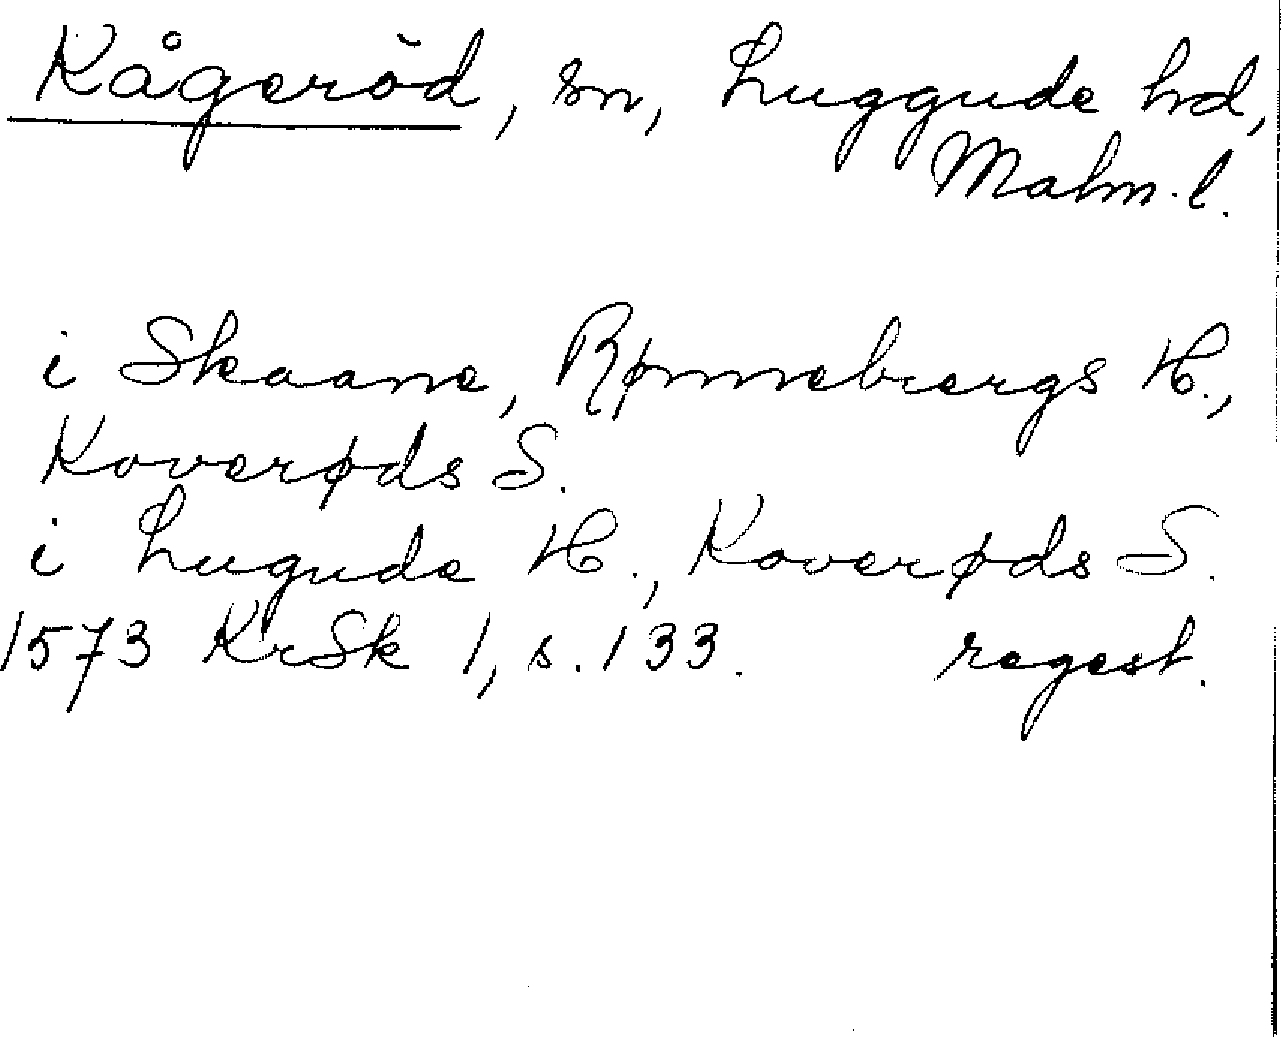 Kågeröd, sn, Luggude hd,
Malm. l.
i Skaane, Rønnebergs H.,
Koverøds S.
i Lugude H., Koverøds S.
1573 KrSk 1, s. 133. regest.